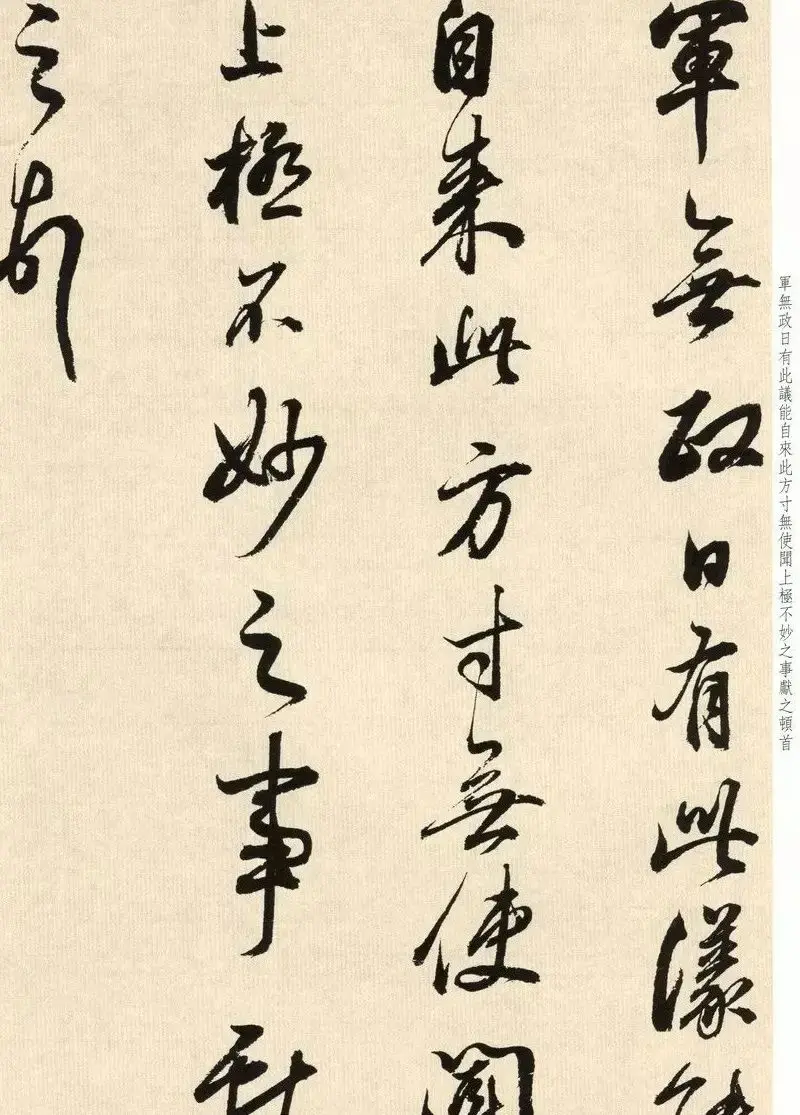 軍無政日有此議能
自来此方寸無使聞
上極不妙之事献
之頓首
軍無政日有此議能自來此方寸無使聞上極不妙之事獻之頓首